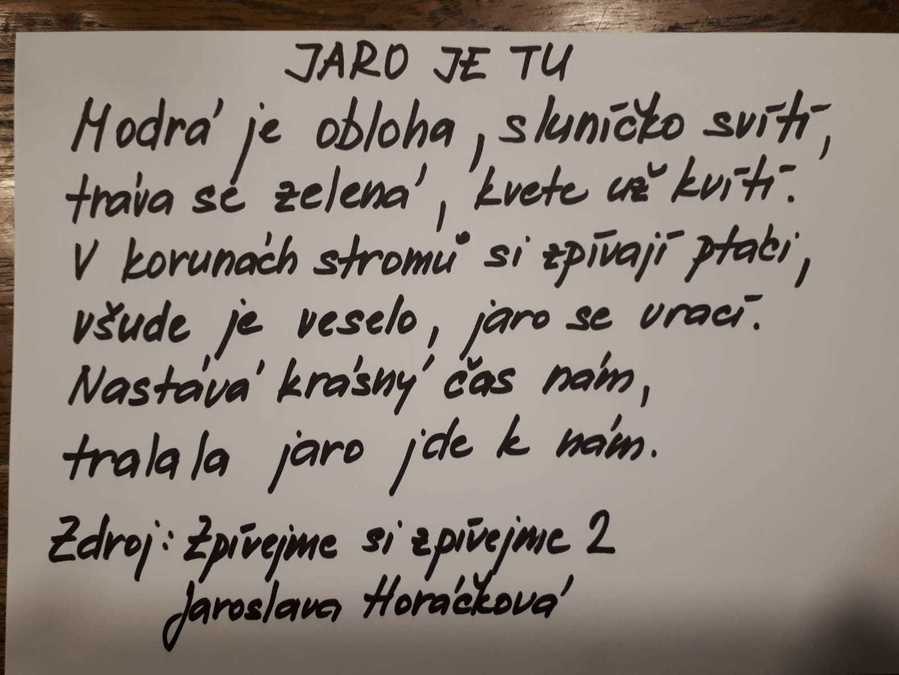 JARO JE TU
Modrá je obloha, sluníčko svítí,
tráva se zelená, kvete už kvítí.
V korunách stromů si zpívají ptáci,
všude je veselo, jaro se vrací.
Nastává krásný čas nám,
tralala jaro jde k nám.
Zdroj: Zpívejme si zpívejme 2
Jaroslava Horáčková